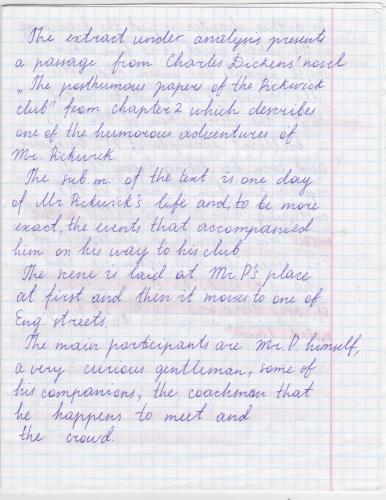 The extract under analysis presents
a passage from Charles Dickens' novel
„The posthumous papers of the Pickwick
club" from chapter 2 which describes
one of the humorous adventures of
Mr. Pickwick.
The sub. m. of the text is one day
of Mr Pickwick's life and, to be more
exact, the events that accompanied
him on his way to his club
The scene is laid at Mr. P's place
at first and then it moves to one of
Eng. streets.
The main participants are Mr. P. himself,
a very curious gentleman, some of
his companions, the coachman that
he happens to meet and
the crowd.